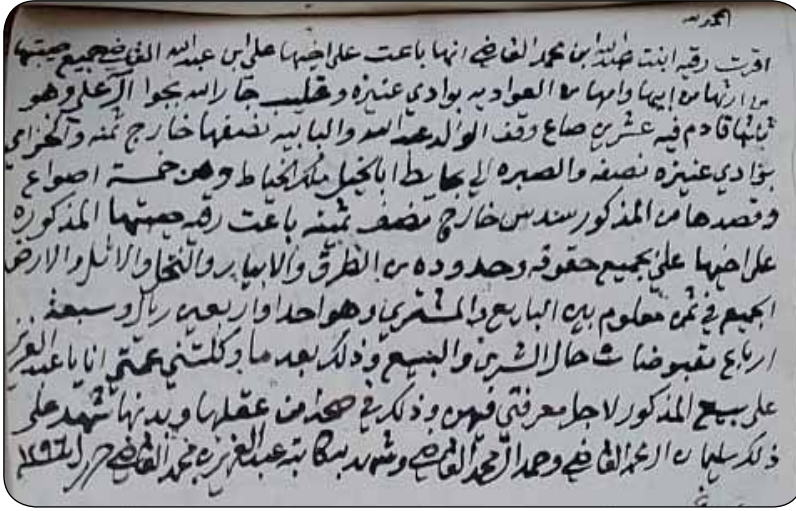 الحمد لله
اقرت رقيه ابنت عبدالله ابن محمد القاضي انها باعت على اخيها علي ابن عبد الله القاضي جميع صيبتها
من ارثها من ابيها وامها من العواديه بوادي عنيزه وقليب جار الله بجوا الرعلي وهو
قادم فيه عشرين صاع وقف الوالد عبد الله والبابيه نصفها خارج ثمنه والخزامي
بوادي عنيزه نصفه والصبره الي بحايط ابا الخيل ملك الخياط وهن خمسة اصواع
وقصدها من المذكور سدس خارج نصف ثمينه باعت رقيه صيبتها المذكوره
على اخيها علي بجميع حقوقه وحدوده من الطرق والابيار والنخل والاثل والارض
الجميع في ثمن معلوم بين البايع والمشتري وهو احدا واربعين ريال وسبعة
ارباع مقبوضات حال الشرين والبيع وذلك بعد ما وكلتني عمتي انا يا عبد العزيز
على بيع المذكور لاجل معرفتي فيهن وذلك في صحة من عقلها وبدنها شهد على
ذلك سليمان المحمد القاضي وحمد المحمد القاضي وشهد به كاتبه عبد العزيز بن محمد القاضي حرر ١٢٩٦